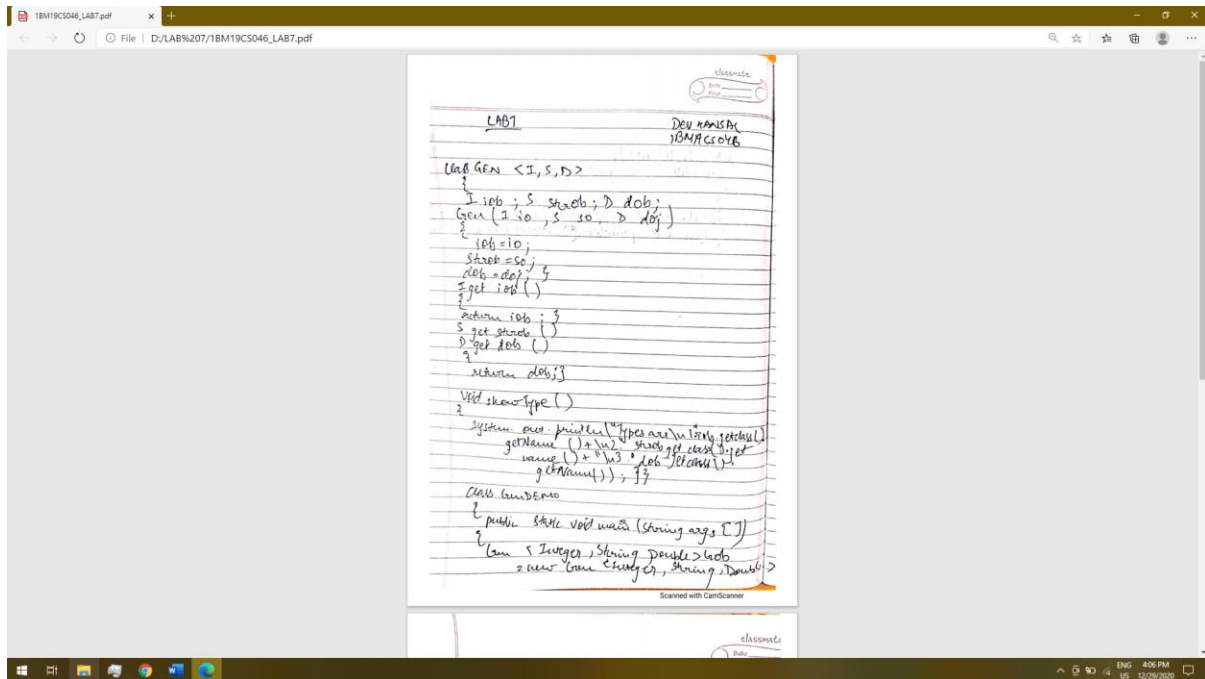 1BM19CS046_LAB7.pdf
File | D:/LAB%207/1BM19CS046_LAB7.pdf
classmate
Date
Page
LAB7
DEV KANSAL
class GEN <I,S,D>
{
I iob ; S strob ; D dob ;
Gen ( I io , S so , D doj )
{
iob = io ;
strob = so ;
dob = doj ; }
I get iob ( )
{
return iob ; }
S get strob ( )
D get dob ( )
{
return dob ; }
Void showType ( )
{
System. out. println ("Types are \n 1 iob.getclass( ).
getName ( ) + \n2. strob get class ( ).get
name ( ) + "\n3. " dob getclass ( ).
getName( ) ) ; } }
class GenDEMO
{
public static void main (String args [ ])
{
Gen < Integer , String Double > Gob
= new Gen <Integer , String , Double >
Scanned with CamScanner
classmate
Date
ENG
US
4:06 PM
12/29/2020